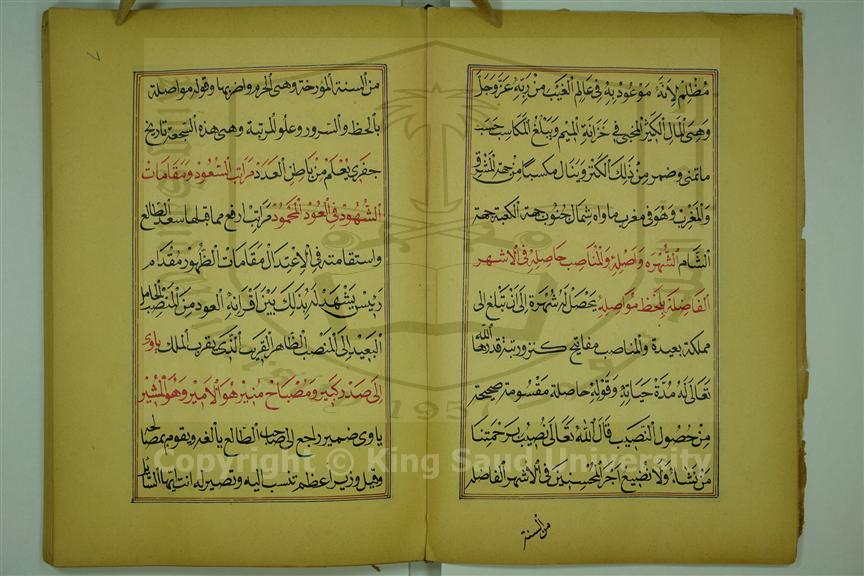 مظلم لانه موعود به في عالم الغيب من ربه عز وجل
وهي المال الكثير المخبي في خزانة الميم ويبلغ المكاسب حسب
ما تمنى وضمر من ذلك الكنز وينال مكسبا من جهة المشرق
والمغرب وهو في مغرب ماواه شمال جنوب جهة الكعبة جهة
الشام الشهره واصله والمناصب حاصله في الاشهر
الفاضلة بالحظ مواصله يحصل له شهرة الى ان تبلغ الى
مملكة بعيدة والمناصب مفاتيح كنز ورتبة قدرها الله
تعالى له مدة حياته وقوله حاصلة مقسومة صحيحة
من حصول النصيب قال الله تعالى نصيب برحمتنا
من نشاء ولا نضيع اجر المحسنين في الاشهر الفاضله
من السنة
٧
من السنة المورخة وهي الحرم واضربها وقوله مواصلة
بالحظ والسرور وعلو المرتبة وهي هذه السجعة تاريخ
جفري يعلم من باطن العدد مراتب السعود ومقامات
الشهود في العود المحمود مراتب ارفع مما قبلها سعد الطالع
واستقامته في الاعتدال مقامات الظهور مقدام
رئيس يشهد له بذلك بين اقرانه العود من المنصب الخامل
البعيد الى المنصب الظاهر القريب الذي يقرب الملك ياوى
الى صدر كبير ومصباح منير هو الامير وهو المشير
ياوى ضمير راجع الى صاحب الطالع يا لغد ويقوم بمصالحه
وقيل وزير اعظم تنسب اليه وتصير له انت ايها السائل
Copyright © King Saud University
1957